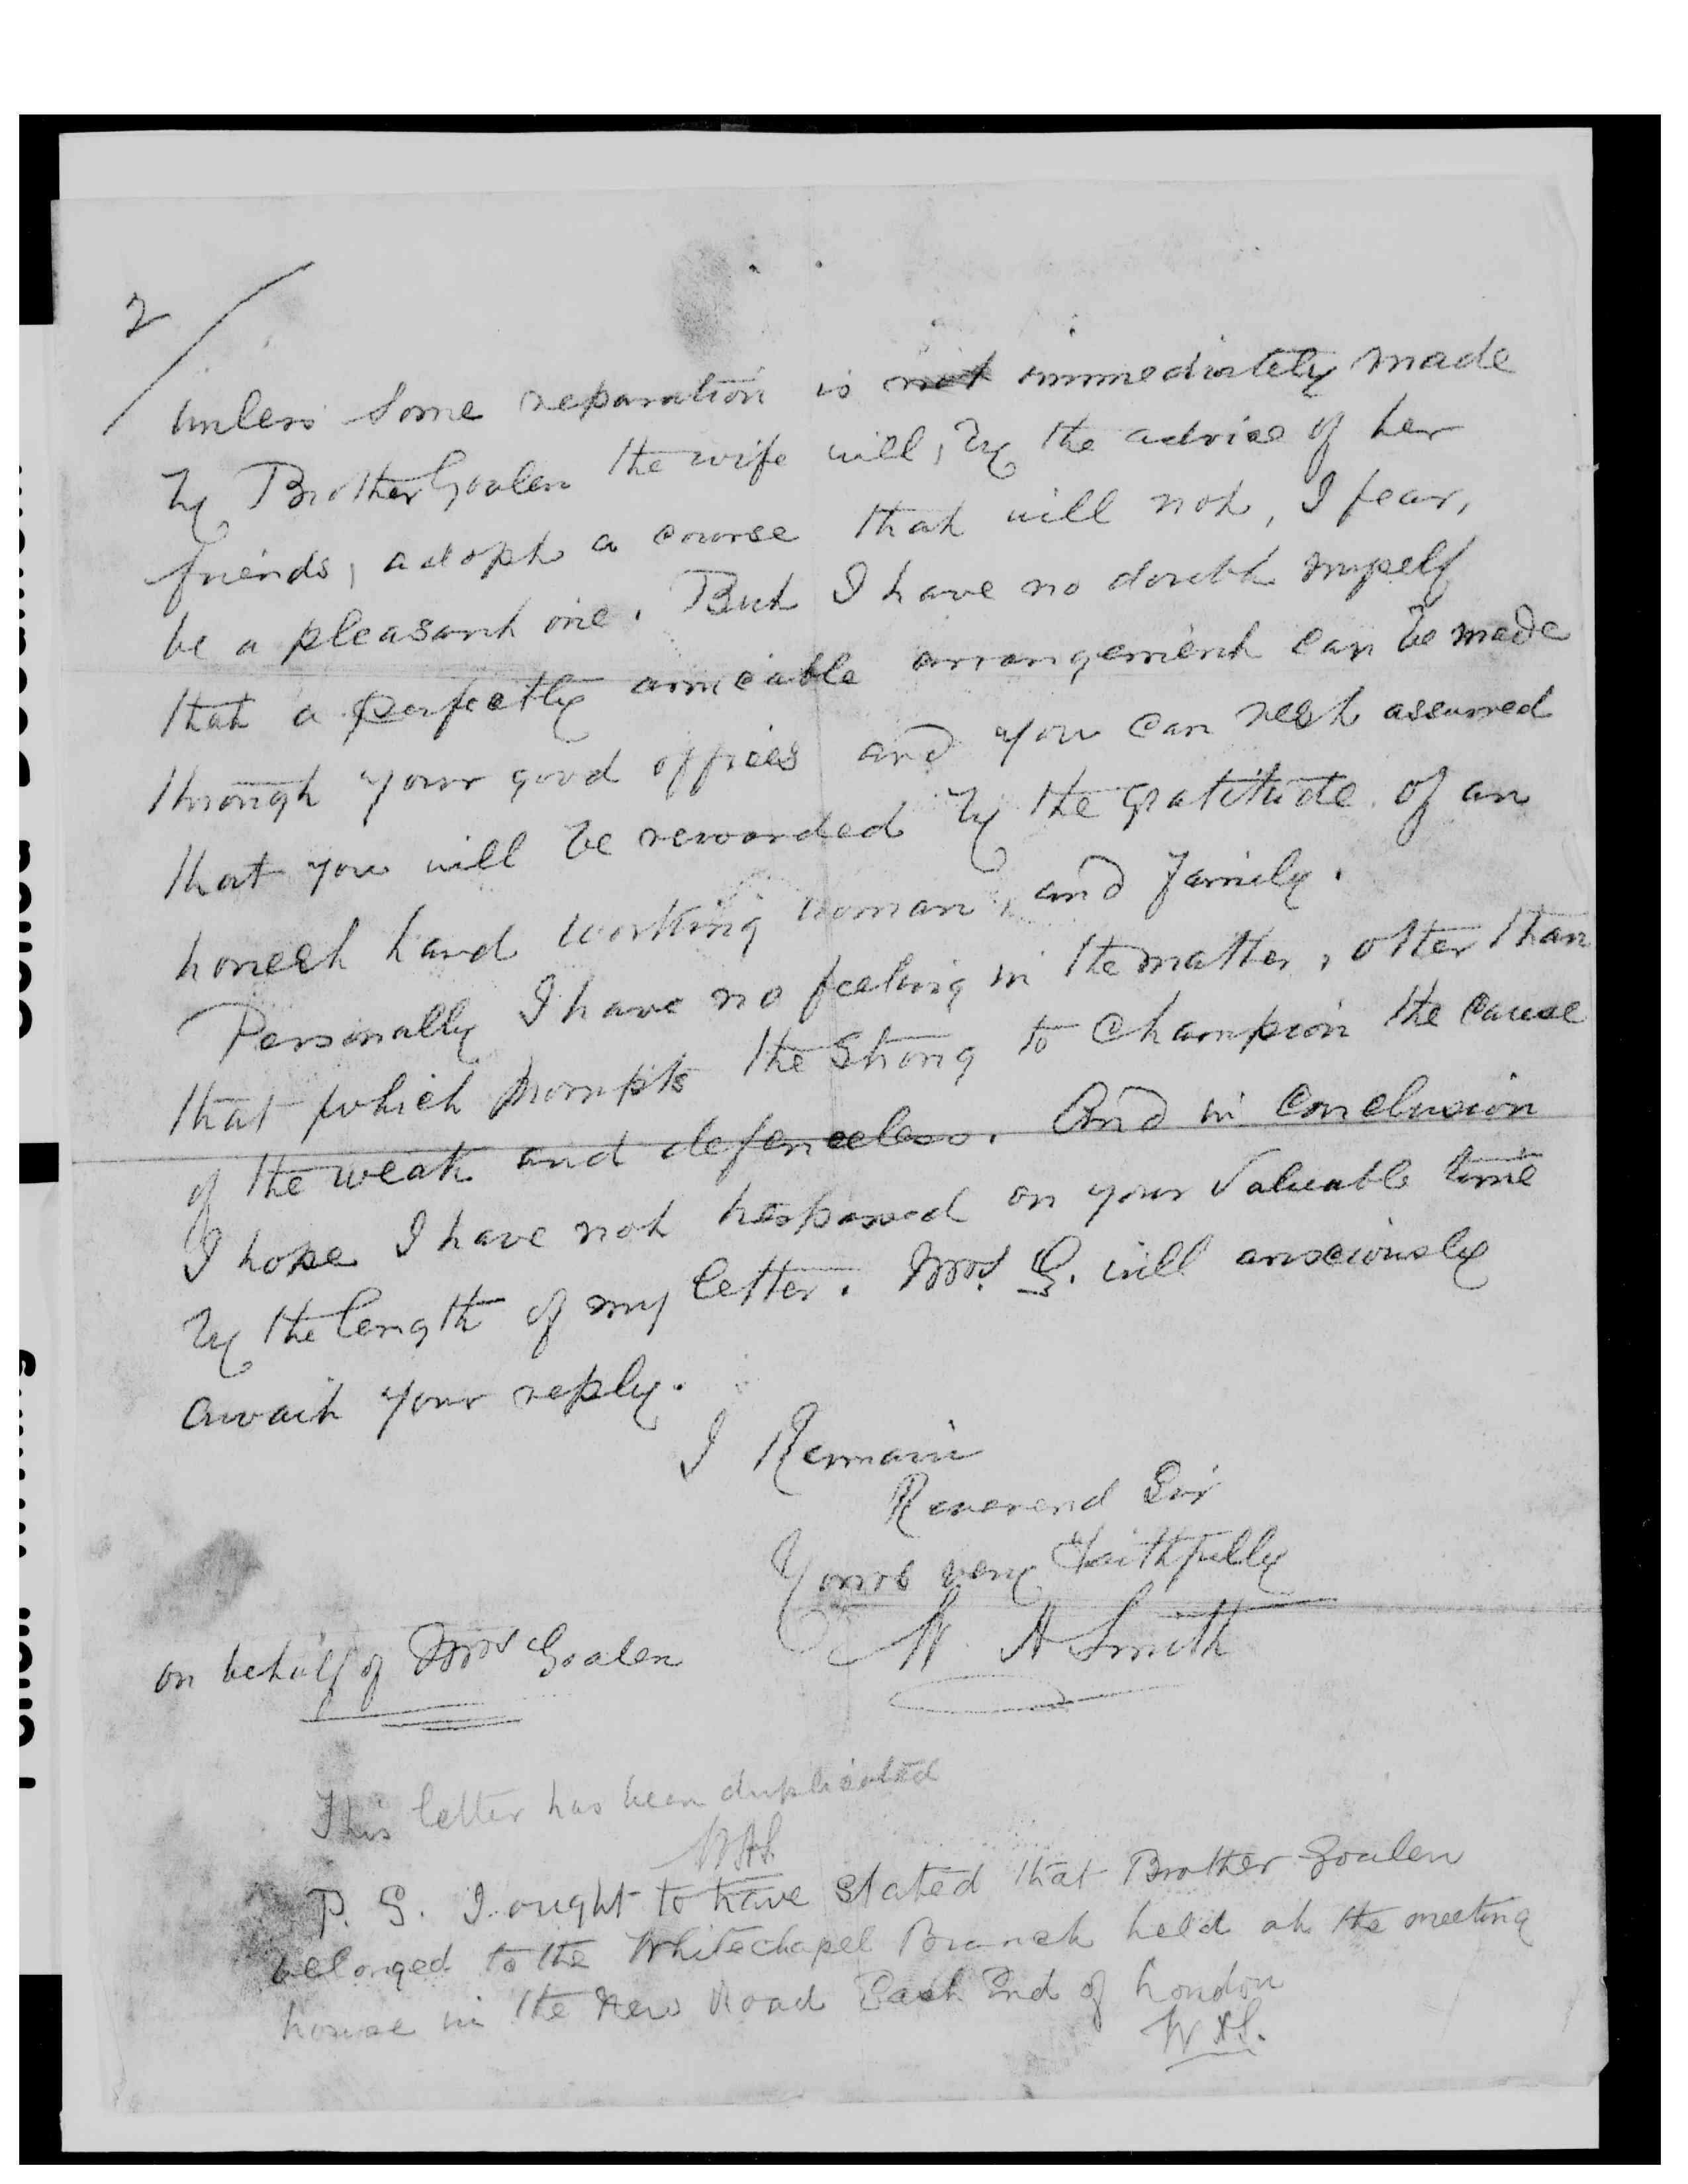 2
unless some reparation is not immediately made
by Brother Goalen the wife will, by the advice of her
friends, adopt a course that will not, I fear,
be a pleasant one. But I have no doubt myself
that a perfectly amicable arrangement can be made
through your good offices and you can rest assured
that you will be rewarded by the gratitude of an
honest hard working woman, and family.
Personally I have no feeling in the matter, other than
that which prompts the Strong to Champion the cause
of the weak and defenceless. And in conclusion
I hope I have not trespassed on your Valuable time
by the length of my letter. Mrs. G. will anxiously
await your reply.
I Remain
Reverend Sir
Yours very Faithfully
W A Smith
on behalf of Mrs Goalen
This letter has been duplicated
WAS.
P. S. I ought to have stated that Brother Goalen
belonged to the Whitechapel Branch held at the meeting
house in the New Road East End of London
WAS.